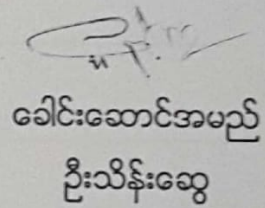 ခေါင်းဆောင်အမည်
ဦးသိန်းဆွေ